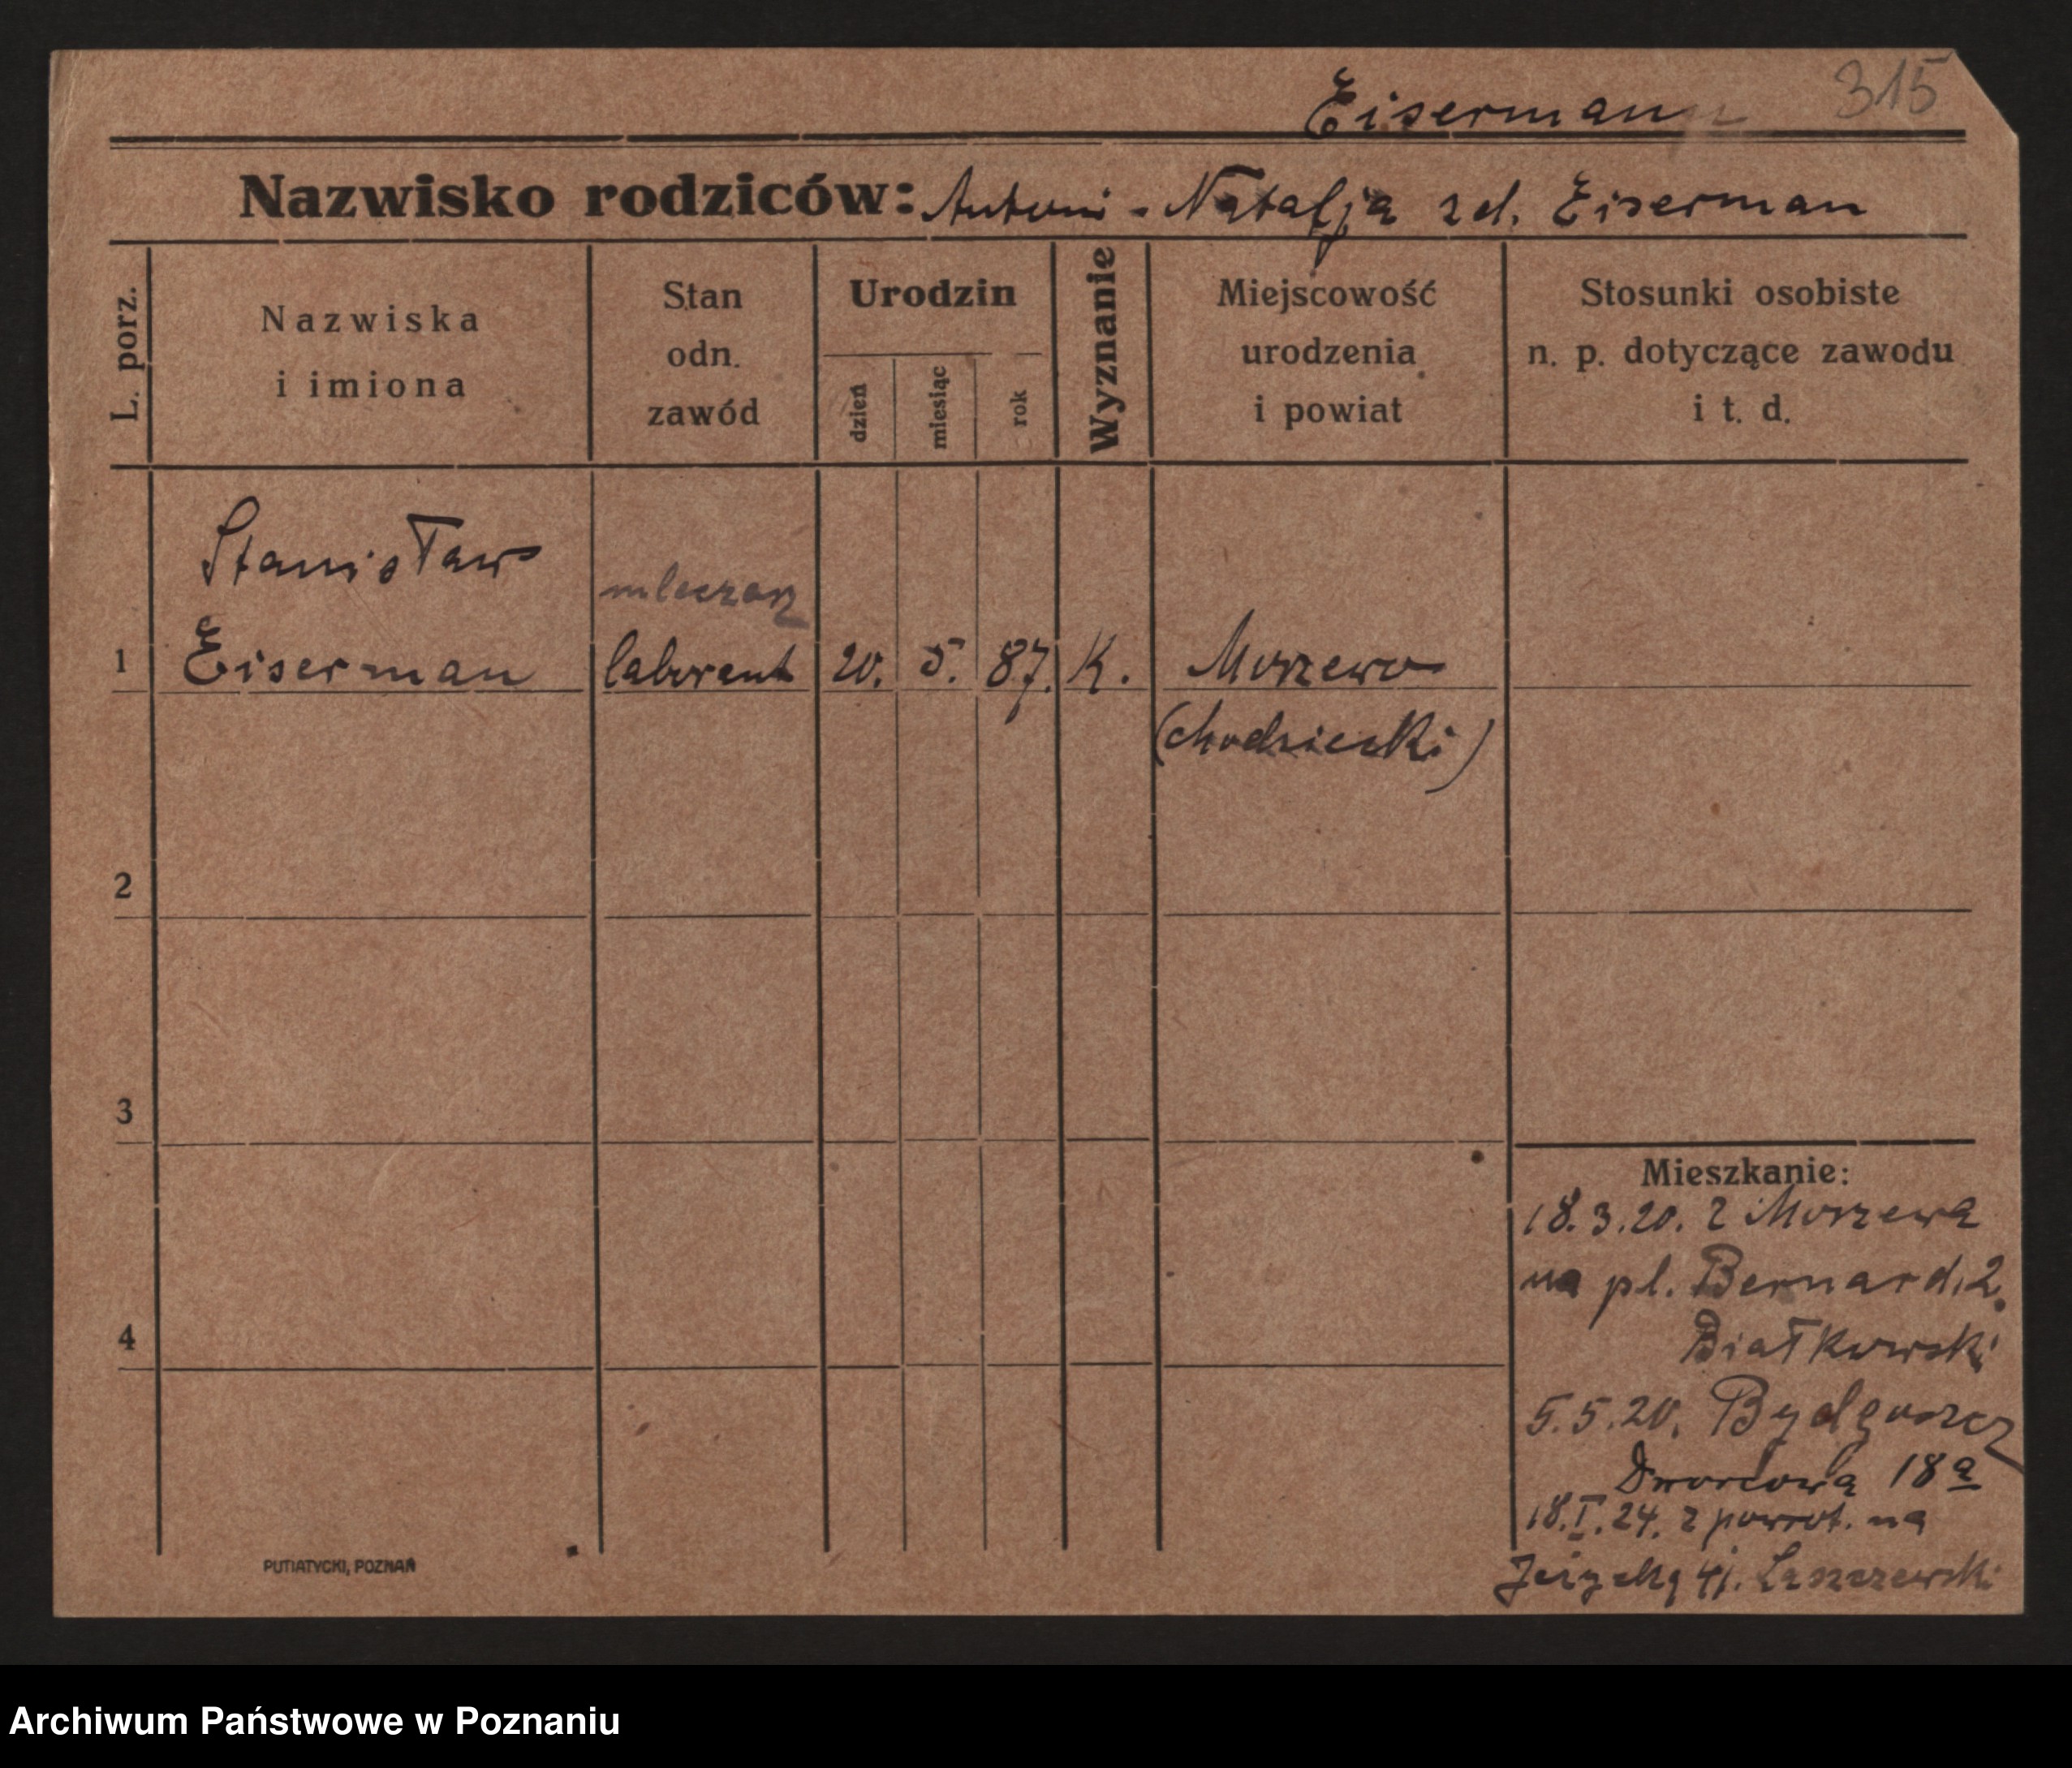 Eiserman 315
Nazwisko rodziców: Antoni - Natalja zd. Eiserman
L. porz.
Nazwiska
i imiona
Stan
odn.
zawód
Urodzin
dzień
miesiąc
rok
Wyznanie
Miejscowość
urodzenia
i powiat
Stosunki osobiste
n. p. dotyczące zawodu
i t. d.
Stanisław
mleczarz
1 Eiserman laborant 20. 5. 87. K. Morzewo
(chodzieski)
2
3
Mieszkanie:
18.3.20. z Morzewa
na pl. Bernard. 2.
4
Białkowski
5.5.20. Bydgoszcz
Dworcowa 18a
18.I.24. z powrot. na
41. Laszczewski
PUTIATYCKI, POZNAŃ
Archiwum Państwowe w Poznaniu